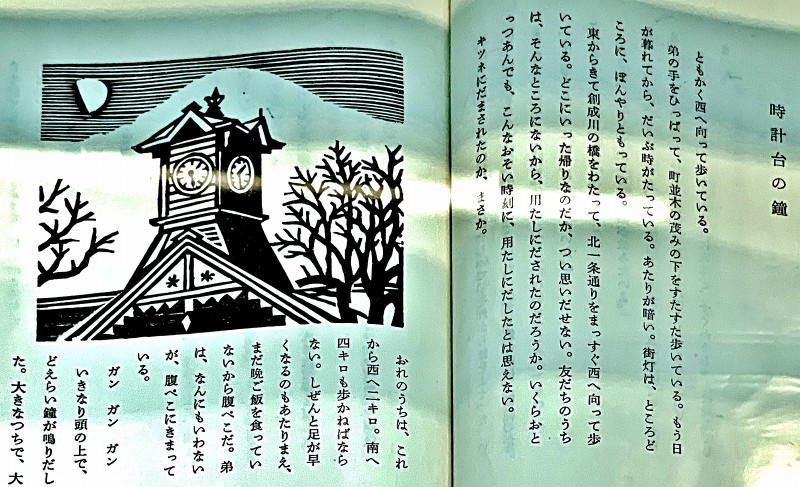 時計台の鐘
ともかく西へ向って歩いている。
弟の手をひっぱって、町並木の茂みの下をすたすた歩いている。もう日
が暮れてから、だいぶ時がたっている。あたりが暗い。街灯は、ところど
ころに、ぼんやりともっている。
東からきて創成川の橋をわたって、北一条通りをまっすぐ西へ向って歩
いている。どこにいった帰りなのだか、つい思いだせない。友だちのうち
は、そんなところにないから、用たしにだされたのだろうか。いくらおと
っつあんでも、こんなおそい時刻に、用たしにだしたとは思えない。
キツネにだまされたのか、まさか。
おれのうちは、これ
から西へ二キロ。南へ
四キロも歩かねばなら
ない。しぜんと足が早
くなるのもあたりまえ、
まだ晩ご飯を食ってい
ないから腹ぺこだ。弟
は、なんにもいわない
が、腹ぺこにきまって
いる。
ガン　ガン　ガン
いきなり頭の上で、
どえらい鐘が鳴りだし
た。大きなつちで、大